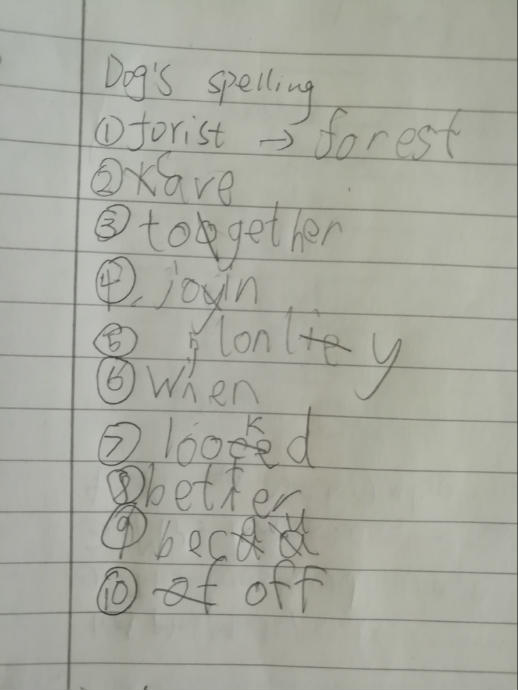 Dog's spelling
① forist → forest
② save
③ together
④ join
⑤ lonly
⑥ when
⑦ looked
⑧ better
⑨
⑩ of off